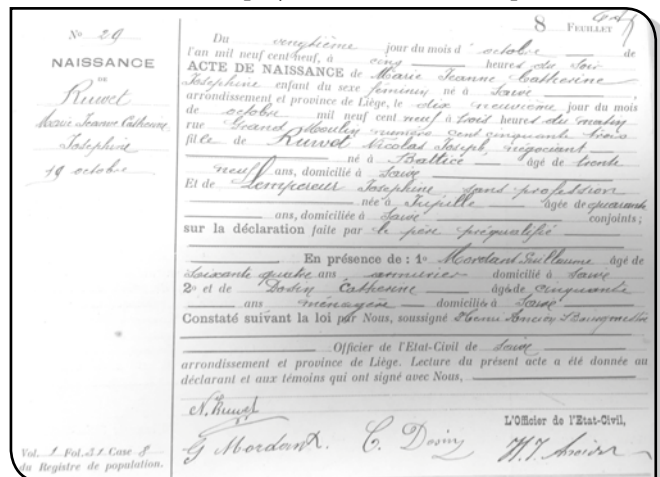 8 FEUILLET
Nº 29
NAISSANCE
DE
Ruwet
Marie Jeanne Catherine
Joséphine
19 octobre
Vol. 1 Fol. 31 Case 8
du Registre de population.
Du vingtième jour du mois d'octobre de
l'an mil neuf cent neuf, à cinq heures du soir
ACTE DE NAISSANCE de Marie Jeanne Catherine
Joséphine enfant du sexe féminin né à Saive
arrondissement et province de Liège, le dix neuvième jour du mois
de octobre mil neuf cent neuf à trois heures du matin
rue Grand Moulin numéro cent cinquante trois
fille de Ruwet Nicolas Joseph, négociant
né à Battice âgé de trente
neuf ans, domicilié à Saive
Et de Lempereur Joséphine sans profession
née à Jupille âgée de quarante
ans, domiciliée à Saive conjoints;
sur la déclaration faite par le père préqualifié
En présence de : 1º Mordant Guillaume âgé de
soixante quatre ans armurier domicilié à Saive
2º et de Dosin Catherine âgé de cinquante
ans ménagère domicilié à Saive
Constaté suivant la loi par Nous, soussigné Henri Bourgmestre
Officier de l'Etat-Civil de Saive
arrondissement et province de Liège. Lecture du présent acte a été donnée au
déclarant et aux témoins qui ont signé avec Nous,
N. Ruwet
L'Officier de l'Etat-Civil,
G Mordant. C. Dosin